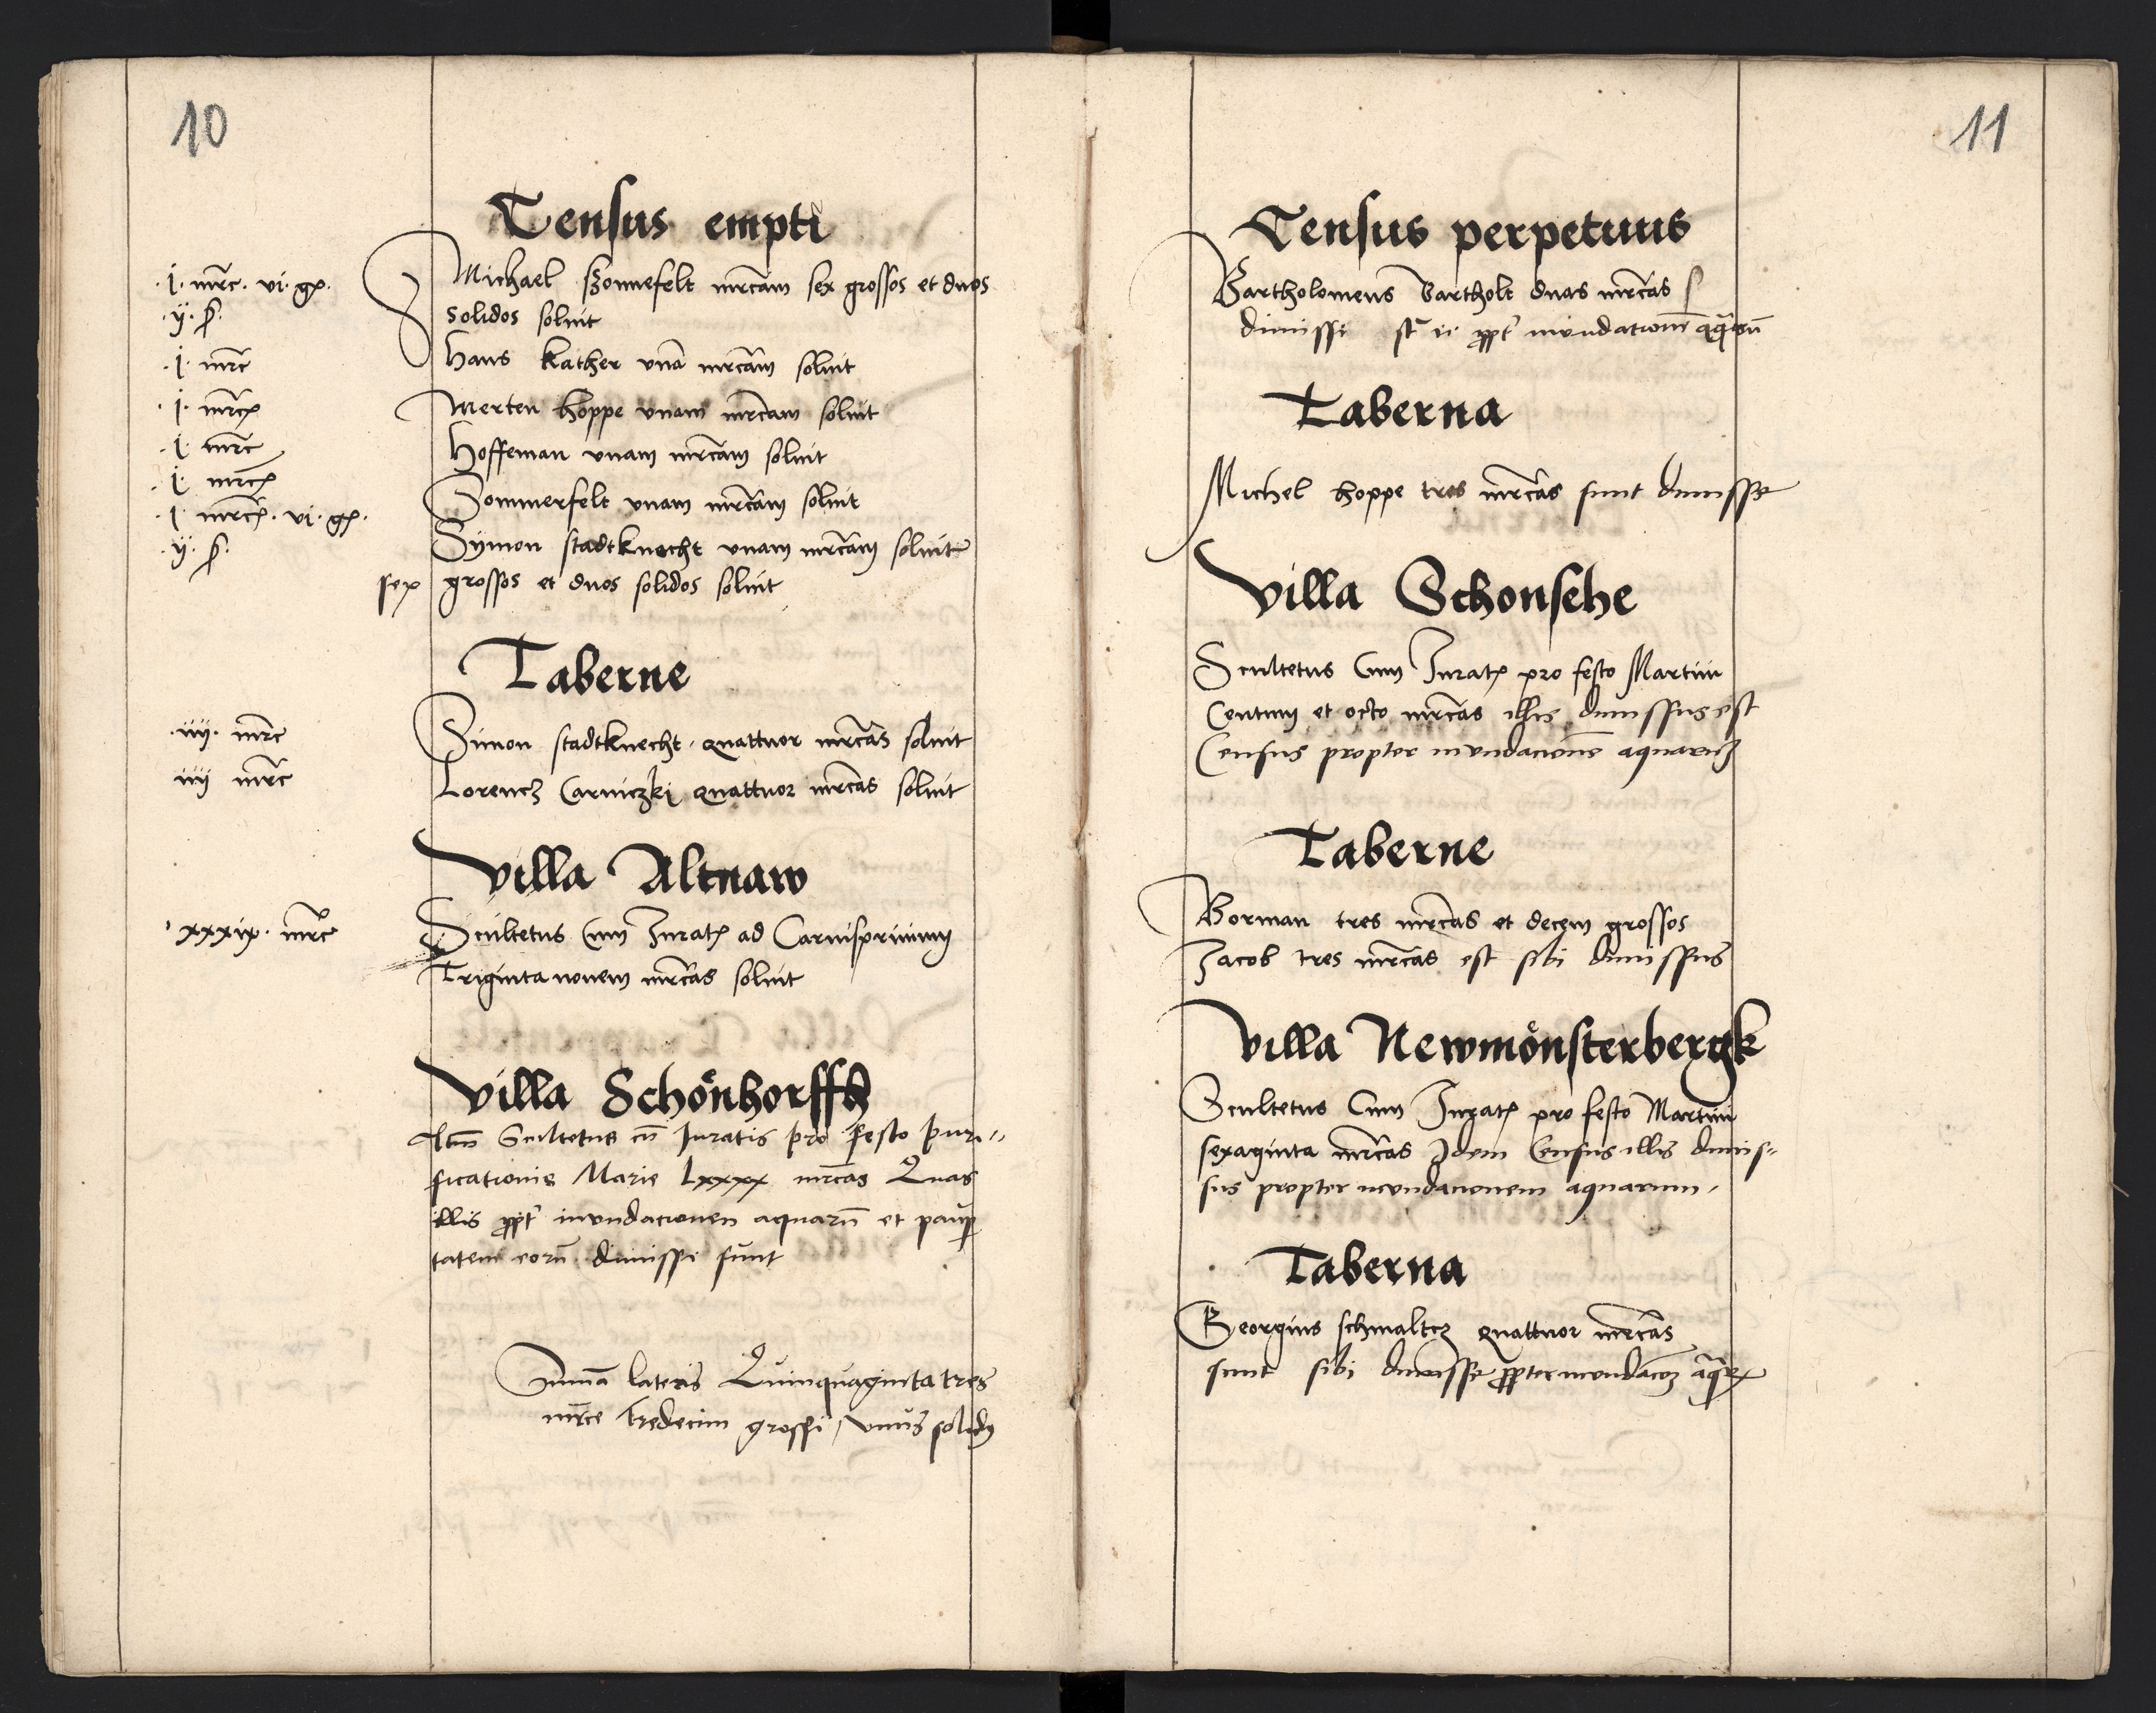 10
Census empti
·i· mrc· vi· gr· Michael Szonnefelt mrcam sex grossos et duos
·ij· ß· solidos soluit
·i· mrc Hans kather vna mrcam soluit
·i· mrc Merten hoppe vnam mrcam soluit
·i· mrc Hoffeman vnam mrcam soluit
·i· mrc Sommerfelt vnam mrcam soluit
·i· mrc· vi· gr· Symon stadtknecht vnam mrcam soluit
·ij· ß· sex grossos et duos solidos soluit
Taberne
·iiij· mrc Simon stadtknecht quattuor mrcas soluit
iiij mrc Lorencz Carniczki quattuor mrcas soluit
Villa Altnaw
xxxix· mrc Scultetus Cum Jurat ad Carnispriuium
Triginta nouem mrcas soluit
Villa Schönhorffh
Itm Scultetus cu Juratis pro festo puri-
ficationis Marie Lxxxx mrcas Quas
illis ppt inundacionen aquaru et paup
tatem eoru dimissi sunt
Suma lateris Quinquaginta tres
mrce tredecim grossi, vnus solid
11
Census perpetuus
Bartholomeus Bartholt duas mrcas
dimissi st ei ppt inundationem aquaru
Taberna
Michel hoppe tres mrcas sunt dimisse
Villa Schonsehe
Scultetus Cum Jurat pro festo Martini
Centum et octo mrcas illis dimissus est
Census propter inundacione aquaru
Taberne
Borman tres mrcas et decem grossos
Jacob tres mrcas est sibi dimissus
Villa Newmönsterbergk
Scultetus Cum Jurat pro festo Martini
sexaginta mrcas Idem Census illis dimis-
sus propter inundationem aquarum
Taberna
Georgius schmaltcz quattuor mrcas
sunt sibi dimisse ppter inundacoz aquar